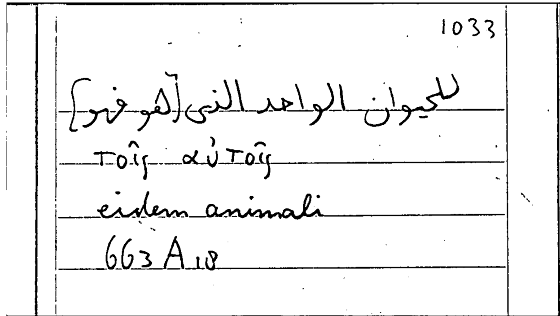 1033
للحيوان الواحد الذي [هو فهو]
τοῖς αὐτοῖς
eidem animali
663 A 18